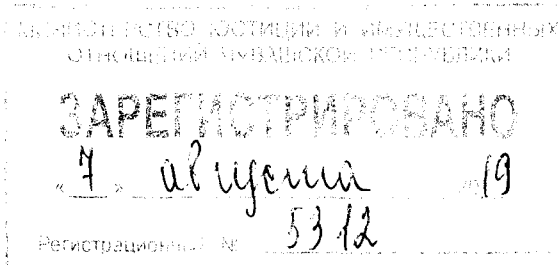 МИНИСТЕРСТВО ЮСТИЦИИ И ИМУЩЕСТВЕННЫХ
ОТНОШЕНИЙ ЧУВАШСКОЙ РЕСПУБЛИКИ
ЗАРЕГИСТРИРОВАНО
« 7 » августа 2019
Регистрационный № 5312